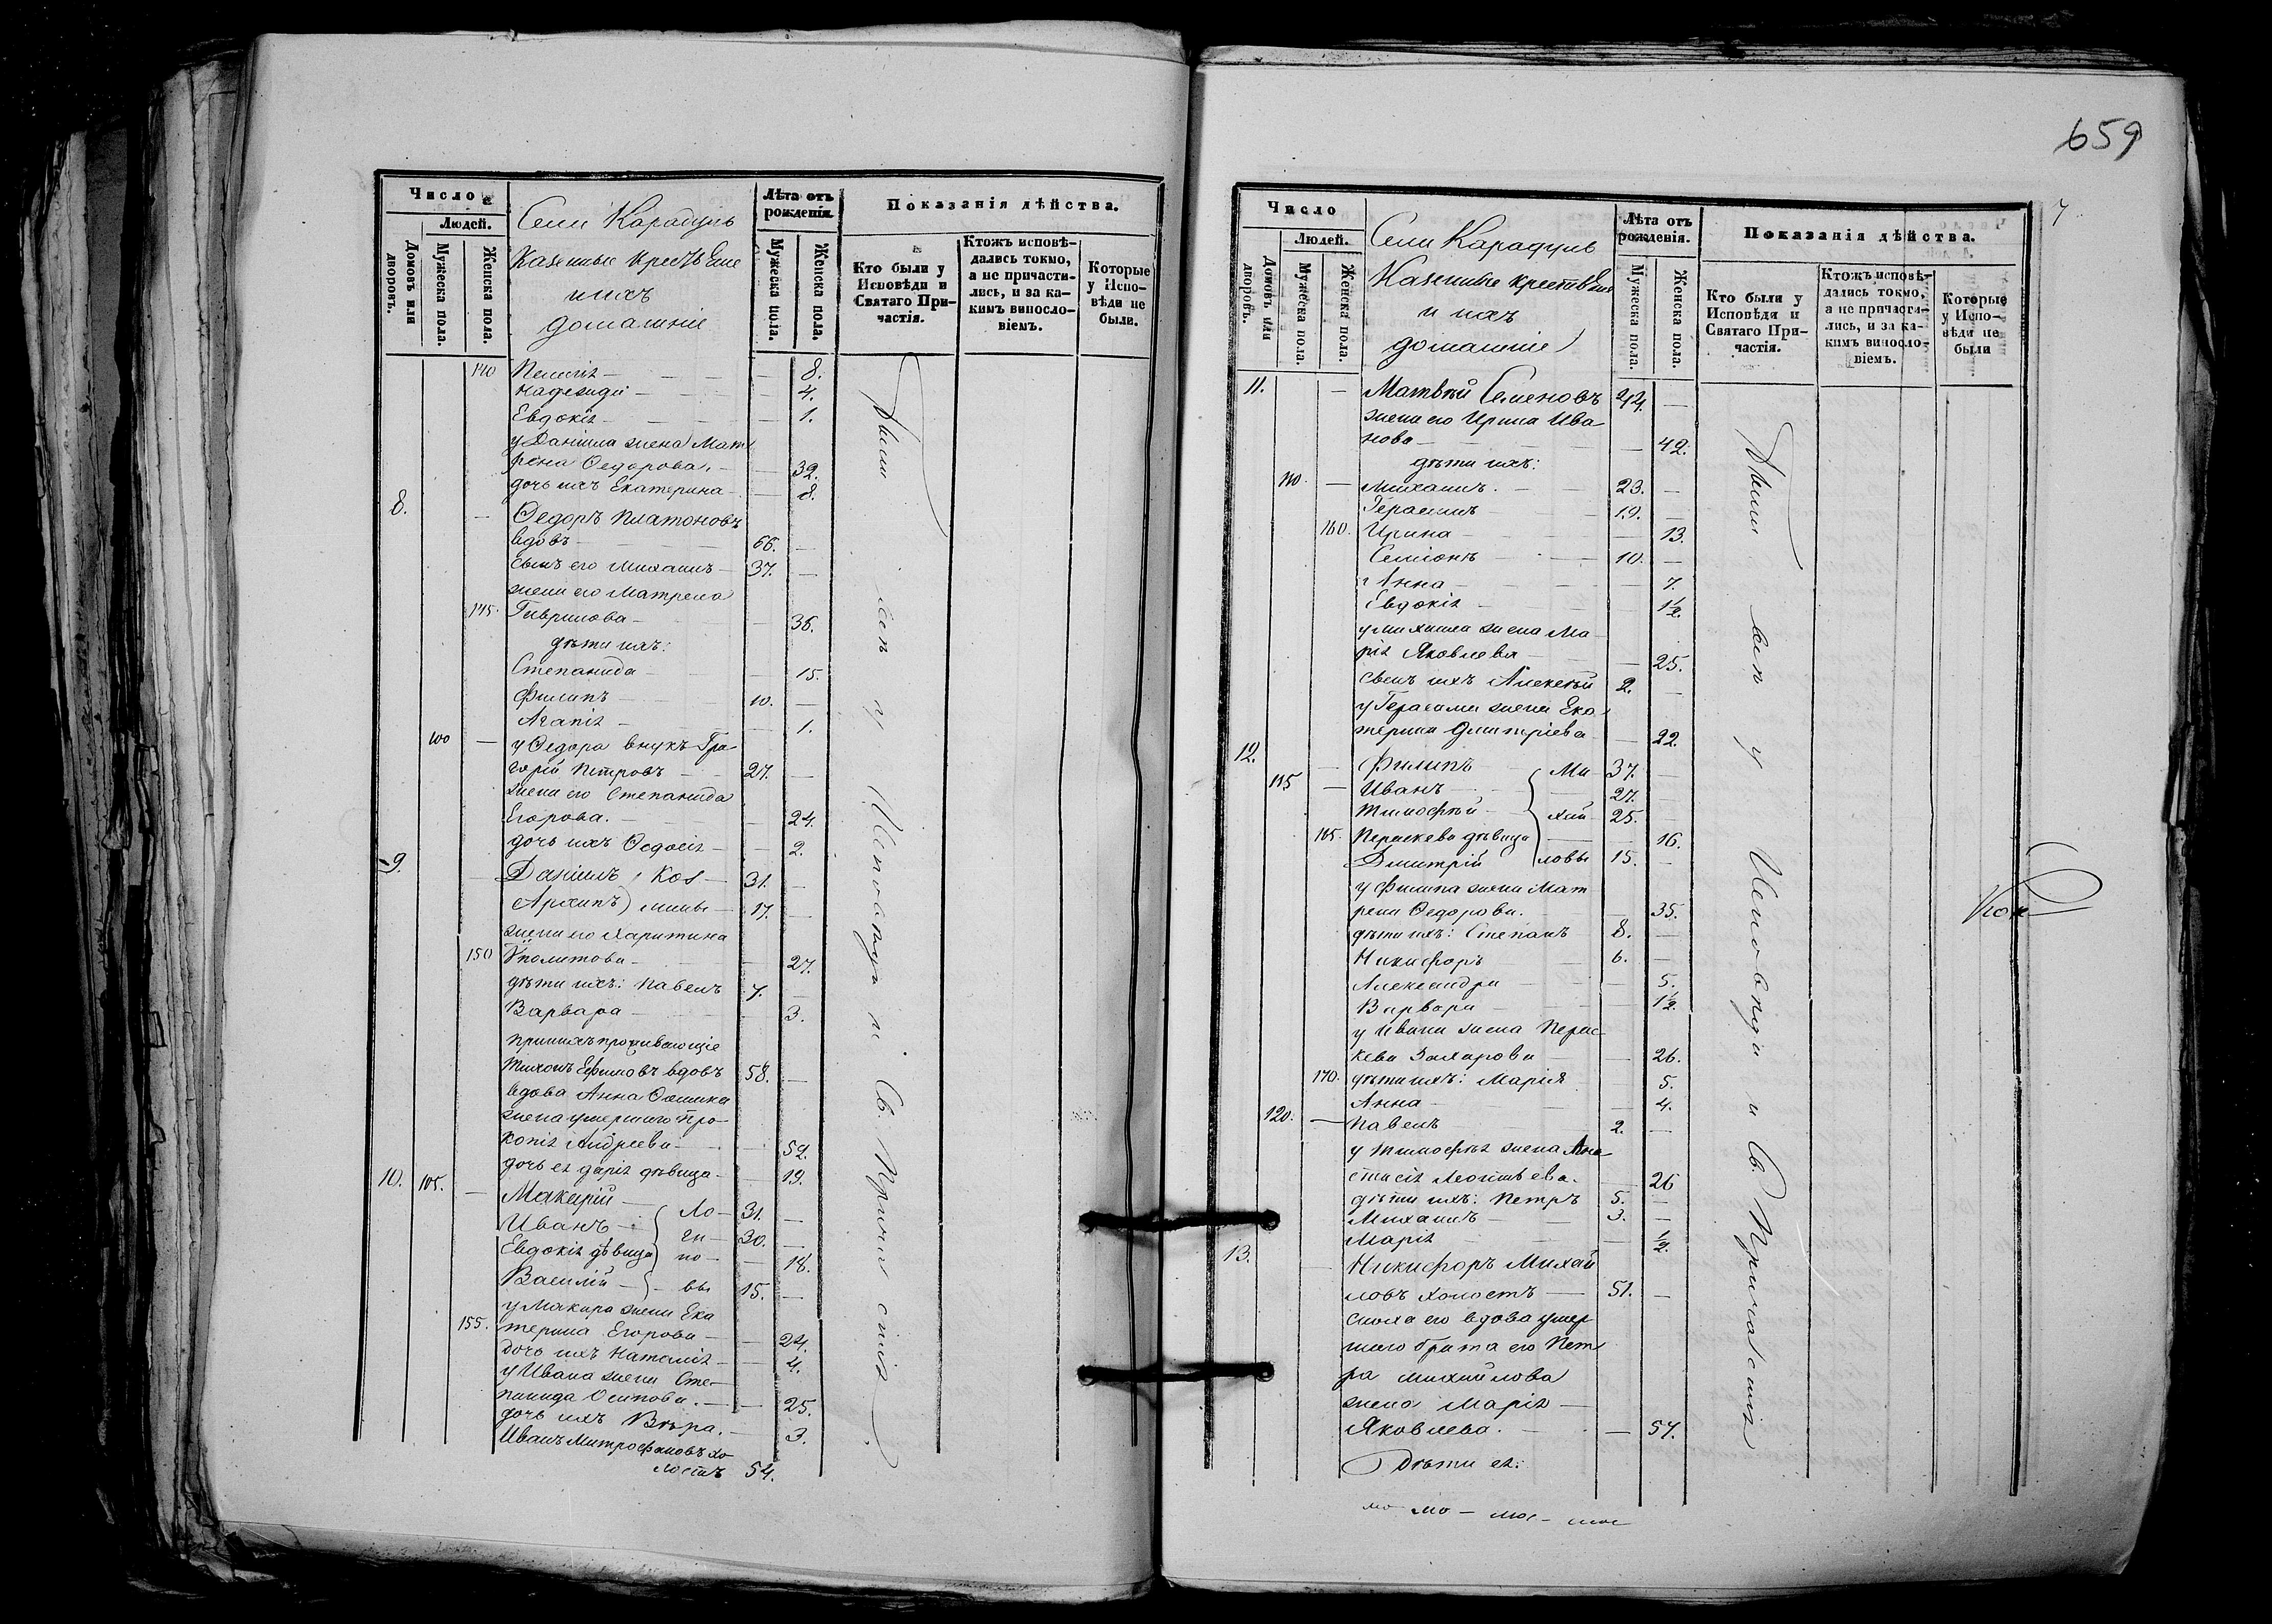 Число
Людей.
Домовъ или дворовъ.
Мужеска пола.
Женска пола.
Села Карадули
Казенные крестьяне
и ихъ
домашніе
Лѣта отъ рожденія.
Мужеска пола.
Женска пола.
Показанія дѣйства.
Кто были у Исповѣди и Святаго Причастія.
Ктожъ исповѣдались токмо, а не причастились, и за какимъ винословіемъ.
Которые у Исповѣди не были.
140 Пелагія — 8.
Надежда — 4.
Евдокія — 1.
у Даніила жена Мат
рена Ѳедорова. — 32.
дочь ихъ Екатерина — 8.
8. — Ѳедоръ Платоновъ
вдовъ — 66. —
сынъ его Михаилъ — 37. —
жена его Матрена
145. Гаврилова — 36.
дѣти ихъ:
Степанида — 15.
Филипъ — 10. —
Агапія — 1.
100 — у Ѳедора внукъ Гри
горій Петровъ — 27. —
жена его Степанида
Егорова. — 24.
дочь ихъ Ѳедосія — 2.
9. Даніилъ Коз — 31. —
Архипъ) мины — 17. —
жена его Харитина
150 Ѵполитова — 27.
дѣти ихъ: Павелъ 7. —
Варвара — 3.
при нихъ проживающіе
Тихонъ Ефимовъ вдовъ 58. —
вдова Анна
жена умершаго Про
копія Андреева — 52.
дочь ея Дарія дѣвица — 19.
10. 105. — Макарій — Ло — 31. —
Иванъ — ги — 30. —
Евдокія дѣвица но — 18.
Василій — вы 15. —
у Макара жена Ека
155. терина Егорова — 24.
дочь ихъ Наталія — 4.
у Ивана жена Сте-
панида Осипова. — 25.
дочь ихъ Вѣра. — 3.
Иванъ Митрофановъ хо
лостъ 54.
Были сіи у Исповѣди и Св. Причастія
659
7
Число
Людей.
Домовъ или дворовъ.
Мужеска пола.
Женска пола.
Села Карадули
Казенные крестьяне
и ихъ
домашніе
Лѣта отъ рожденія.
Мужеска пола.
Женска пола.
Показанія дѣйства.
Кто были у Исповѣди и Святаго Причастія.
Ктожъ исповѣдались токмо, а не причастились, и за какимъ винословіемъ.
Которые у Исповѣди не были
11. — Матвѣй Семеновъ 44. —
жена его Ирина Ива
нова — 42.
дѣти ихъ:
110. — Михаилъ. — 23. —
Герасимъ — 19. —
160. Ирина — 13.
Симіонъ — 10. —
Анна — 7.
Евдокія — 1½.
у Михаила жена Ма
рія Яковлева — 25.
сынъ ихъ Алексѣй 2. —
у Герасима жена Ека
терина Дмитріева — 22.
12. — Филипъ — Ми 37. —
115 — Иванъ — 27. —
Тимоѳѣй — хай 25. —
165. Параскева дѣвица — 16.
Дмитрій ловы 15. —
у Филипа жена Мат
рена Ѳедорова. — 35.
дѣти ихъ: Степанъ 8. —
Никифоръ 6. —
Александра — 5.
Варвара — 1½.
у Ивана жена Парас-
кева Захарова — 26.
170. дѣти ихъ: Марія 5.
Анна — 4.
120. — Павелъ 2. —
у Тимоѳѣя жена Ана
стасія Леонтьева. — 26
дѣти ихъ: Петръ 5. —
Михаилъ — 3. —
Марія — ½.
13. Никифоръ Михай
ловъ холостъ — 51. —
сноха его вдова умер
шаго брата его Пет
ра Михайлова
жена Марія —
Яковлева. — 57.
Дѣти ея:
Были сіи у Исповѣди и Св. Причастія